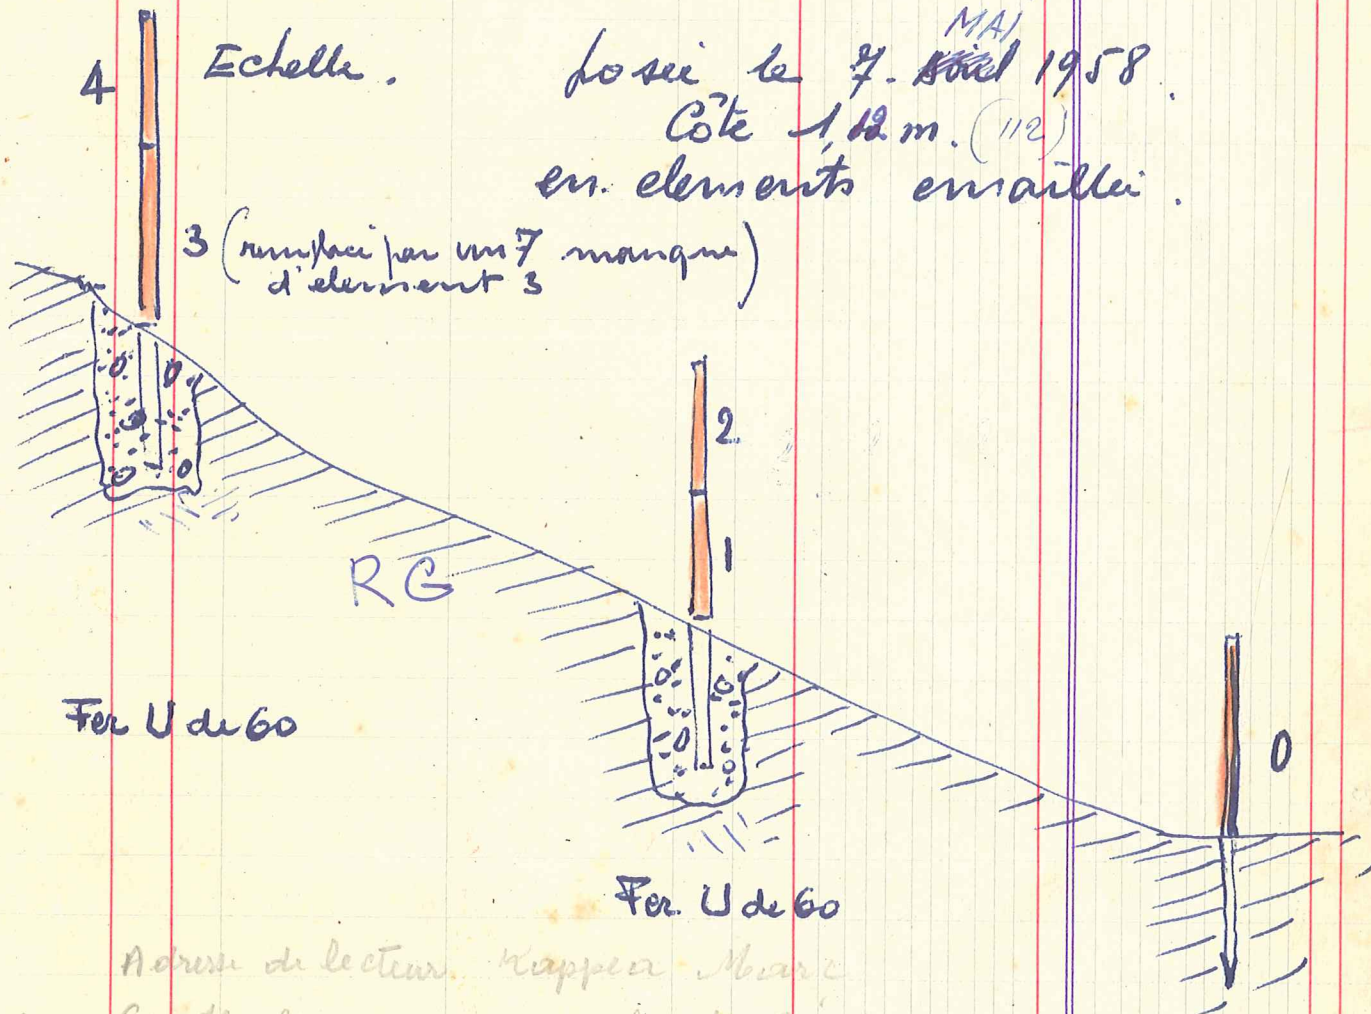 MAI
4 Echelle. posée le 7. 1958.
Côte 1,12 m. (112)
en elements emaillé.
3 (remplacé par un 7 manque
d'element 3)
2
1
RG
Fer U de 60
0
Fer. U de 60
Adresse de lecteur Kappea Marc